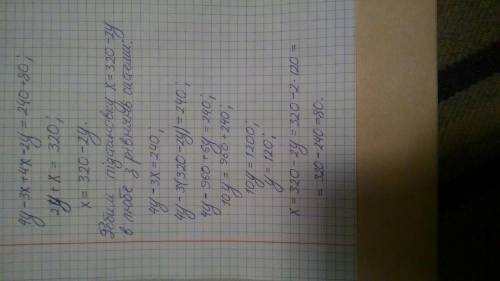 4y-3x+4x-2y=240+80;
2y+x=320;
x=320-2y.
Робим підстановку x=320-2y
в любе з рівнянь системи:
4y-3x=240,
4y-3(320-2y)=240;
4y-960+6y=240;
10y=960+240;
10y=1200;
y=120;
x=320-2y=320-2·120=
=320-240=80.